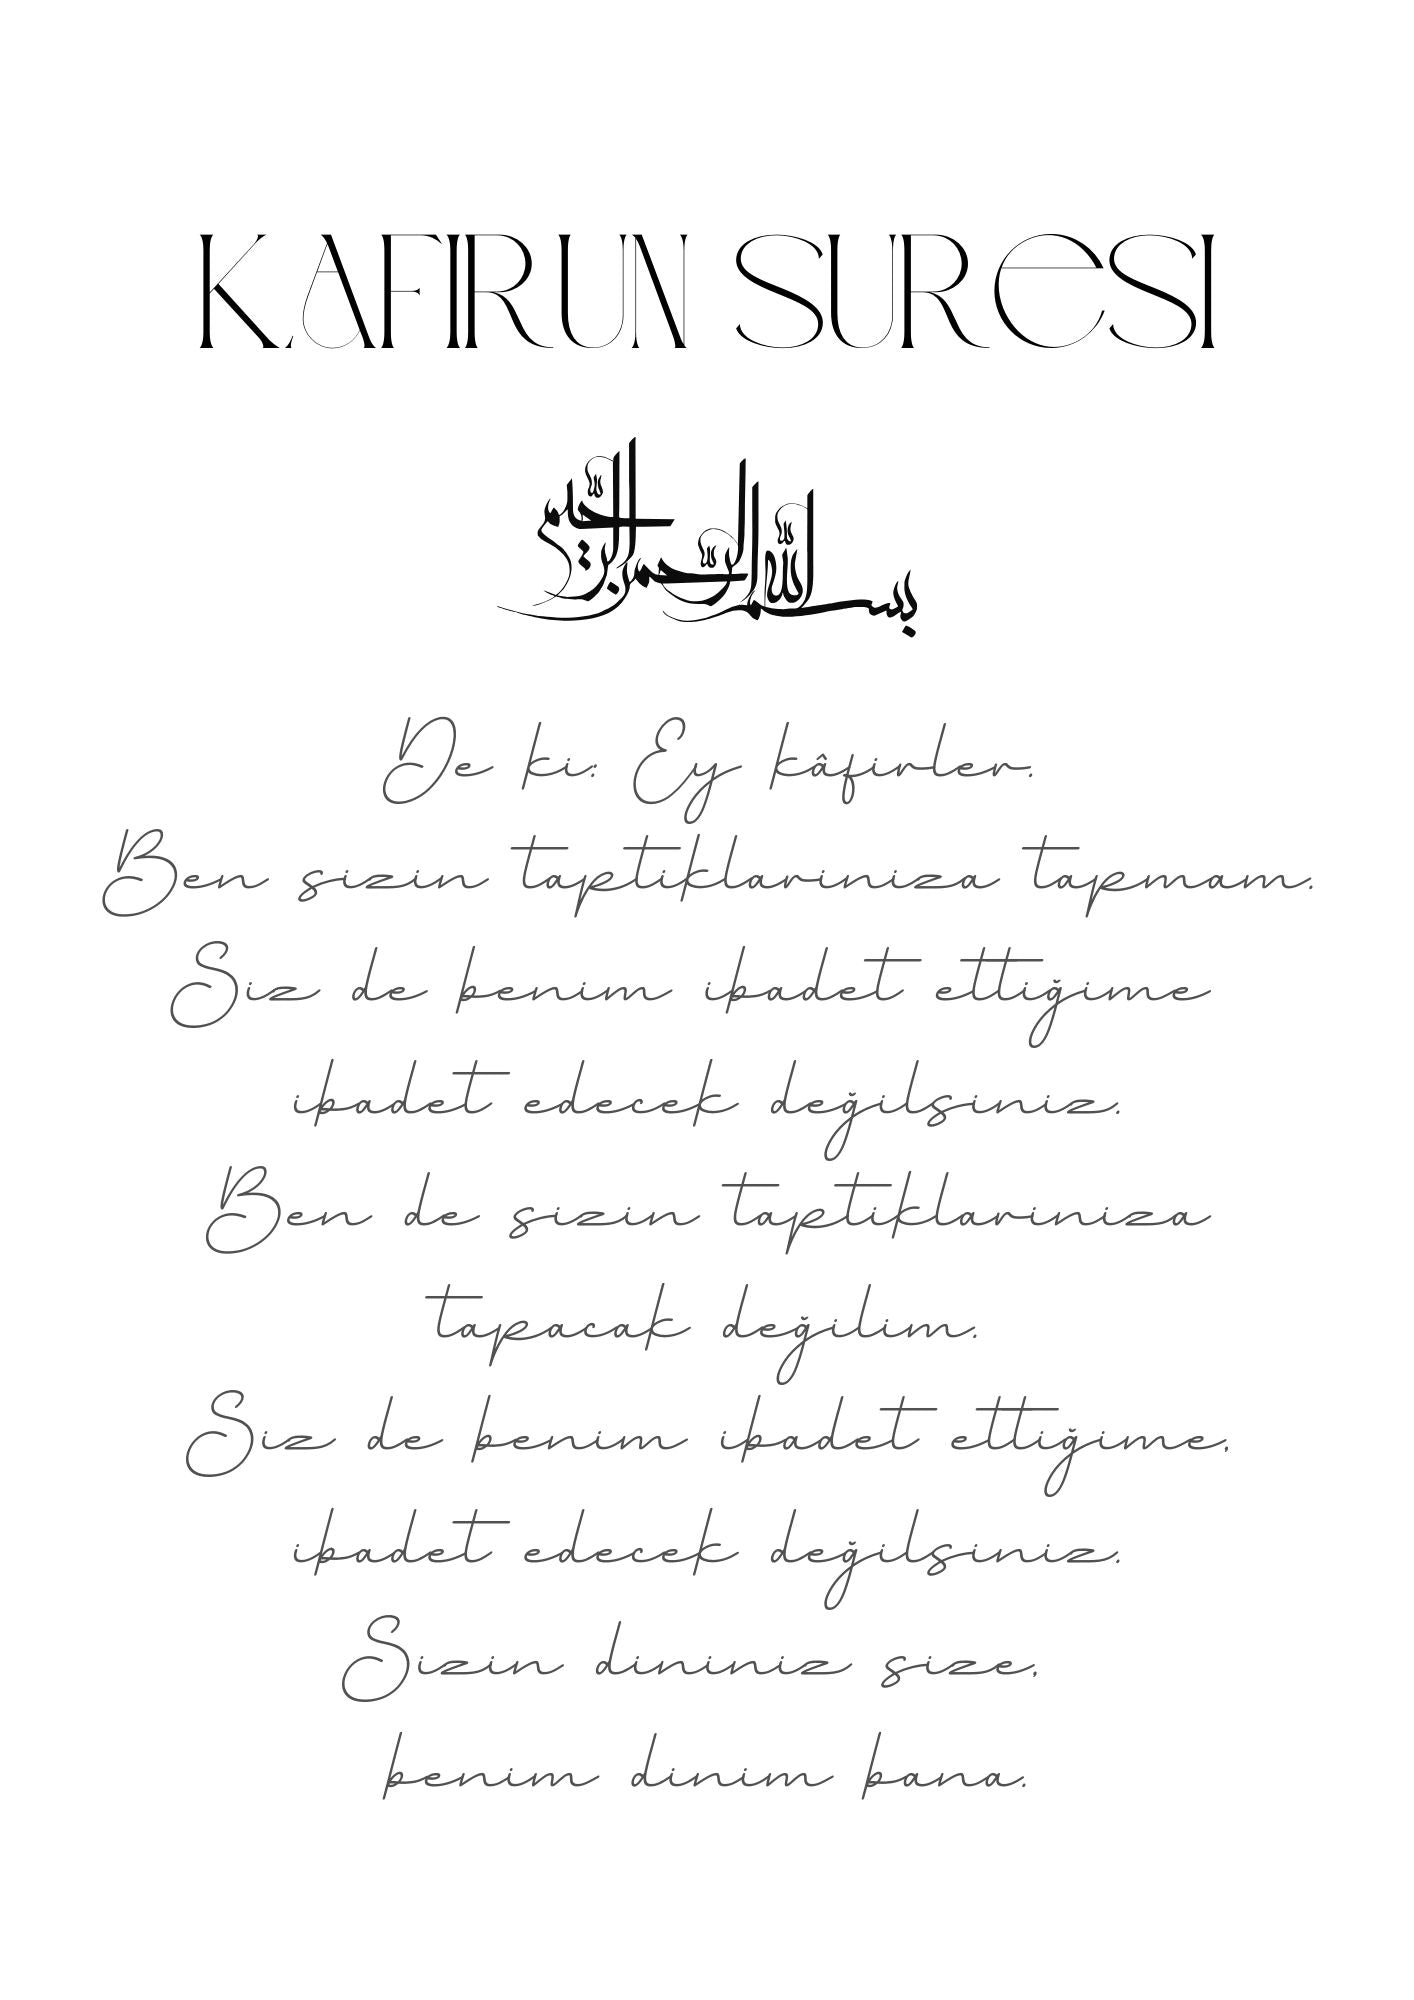 KAFIRUN SURESI
بسم الله الرحمن الرحيم
De ki: Ey kâfirler.
Ben sizin taptiklariniza tapmam.
Siz de benim ibadet ettiğime
ibadet edecek değilsiniz.
Ben de sizin taptiklariniza
tapacak değilim.
Siz de benim ibadet ettiğime,
ibadet edecek değilsiniz.
Sizin dininiz size,
benim dinim bana.